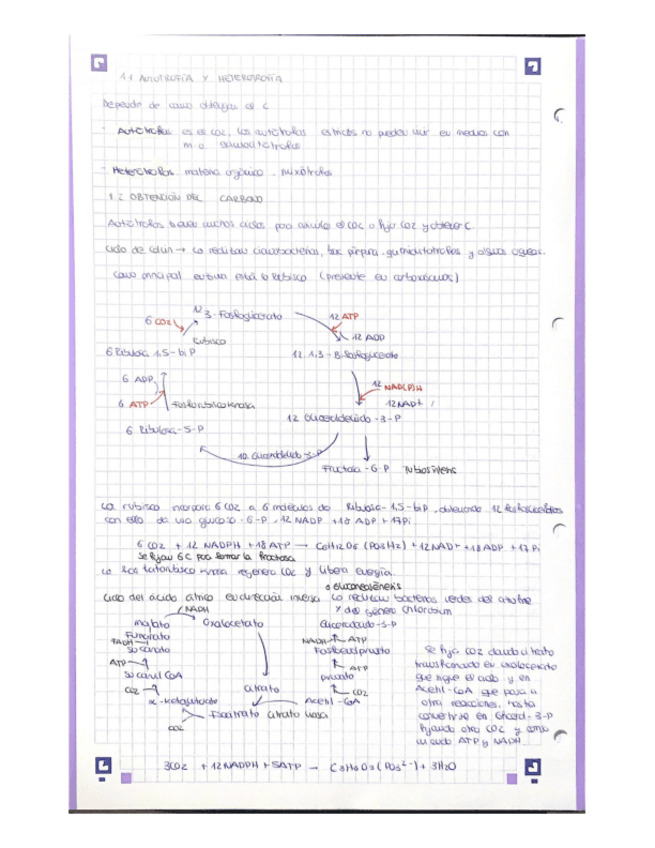 1.1 AUTOTROFÍA Y HETEROTROFÍA
Depende de como obtengas el C
- Autótrofos es el CO2, los autótrofos estrictos no pueden vivir en medios con
m.o.
- Heterótrofos materia orgánica. Mixótrofos
1.2 OBTENCIÓN DEL CARBONO
Autótrofos tienen muchos ciclos para asimilar el CO2 o fijar CO2 y obtener C
Ciclo de Calvin → Lo realizan cianobacterias, bac púrpura, quimiolitotrofos y algunas
como principal enzima está la Rubisco (presente en carboxisomas)
12 3-Fosfoglicerato
12 ATP
6 CO2
Rubisco
12 ADP
6 Ribulosa 1,5-biP
12 1,3-Bifosfoglicerato
6 ADP
12 NAD(P)H
6 ATP
Fosforribuloquinasa
12 NAD+
12 Gliceraldehído-3-P
6 Ribulosa-5-P
10 Gliceraldehído-3-P
Fructosa-6-P
La rubisco incorpora 6 CO2 a 6 moléculas de Ribulosa-1,5-biP, obteniendo 12 fosfogliceratos
con ello da una glucosa-6-P, 12 NADP +18 ADP + 17Pi
6 CO2 + 12 NADPH + 18 ATP → C6H12O6 (PO3H2) + 12 NAD+ + 18 ADP + 17 Pi
Se fijan 6C para formar la fructosa
regenera CO2 y libera energía.
o gluconeogénesis
Ciclo del ácido cítrico en dirección inversa Lo realizan bacterias verdes del azufre
y del género Chlorobium
NADH
malato Oxalacetato
Gliceraldehído-3-P
Fumarato
NADH ATP
FADH
Fosfoenolpiruvato
succinato
ATP
ATP
piruvato
succinil CoA
CO2
CO2
citrato
Acetil-CoA
α-Ketoglutarato
Isocitrato citrato liasa
CO2
Se fija CO2 dando citrato
transformado en oxalacetato
que sigue el ciclo y en
Acetil-CoA que pasa a
otra reacciones, hasta
convertirse en Glicerald-3-P
fijando otro CO2 y
ATP y NADH
3CO2 + 12NADPH + 5ATP → C3H6O3(PO3²⁻) + 3H2O